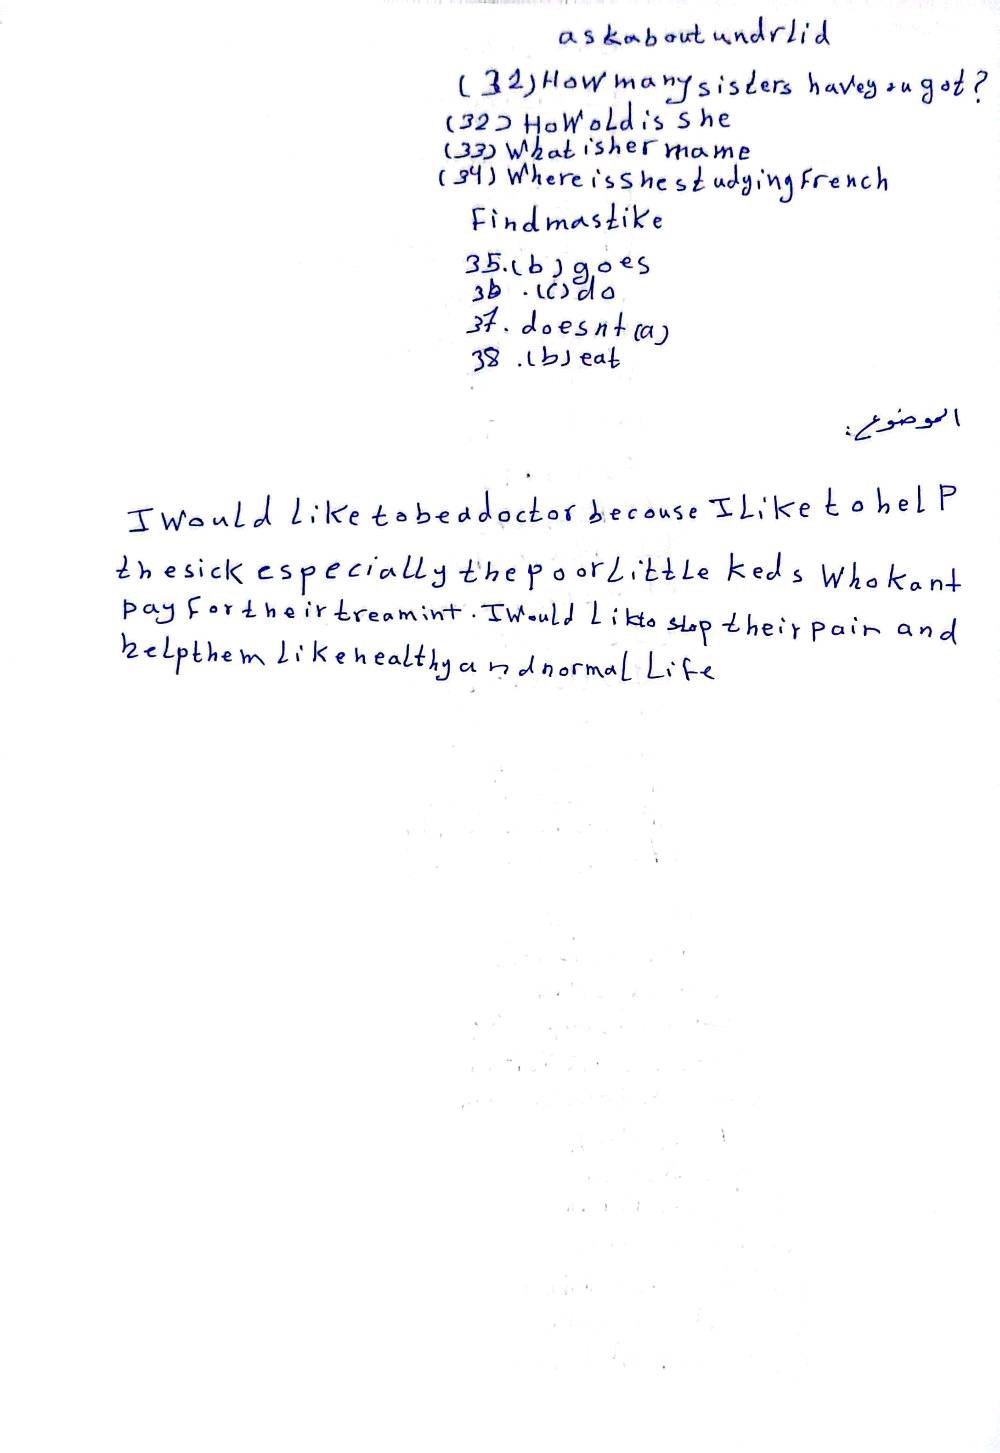 ask about undrlid
(31) How many sisters have you got?
(32) How old is she
(33) What is her mame
(34) Where is she studying French
Find mastike
35. (b) goes
36. (c) do
37. doesnt (a)
38. (b) eat
الموضوع:
I would like to be a doctor becouse I like to help
the sick especially the poor little keds who kant
pay for their treamint. I would lik to stop their pain and
help them like healthy and normal life